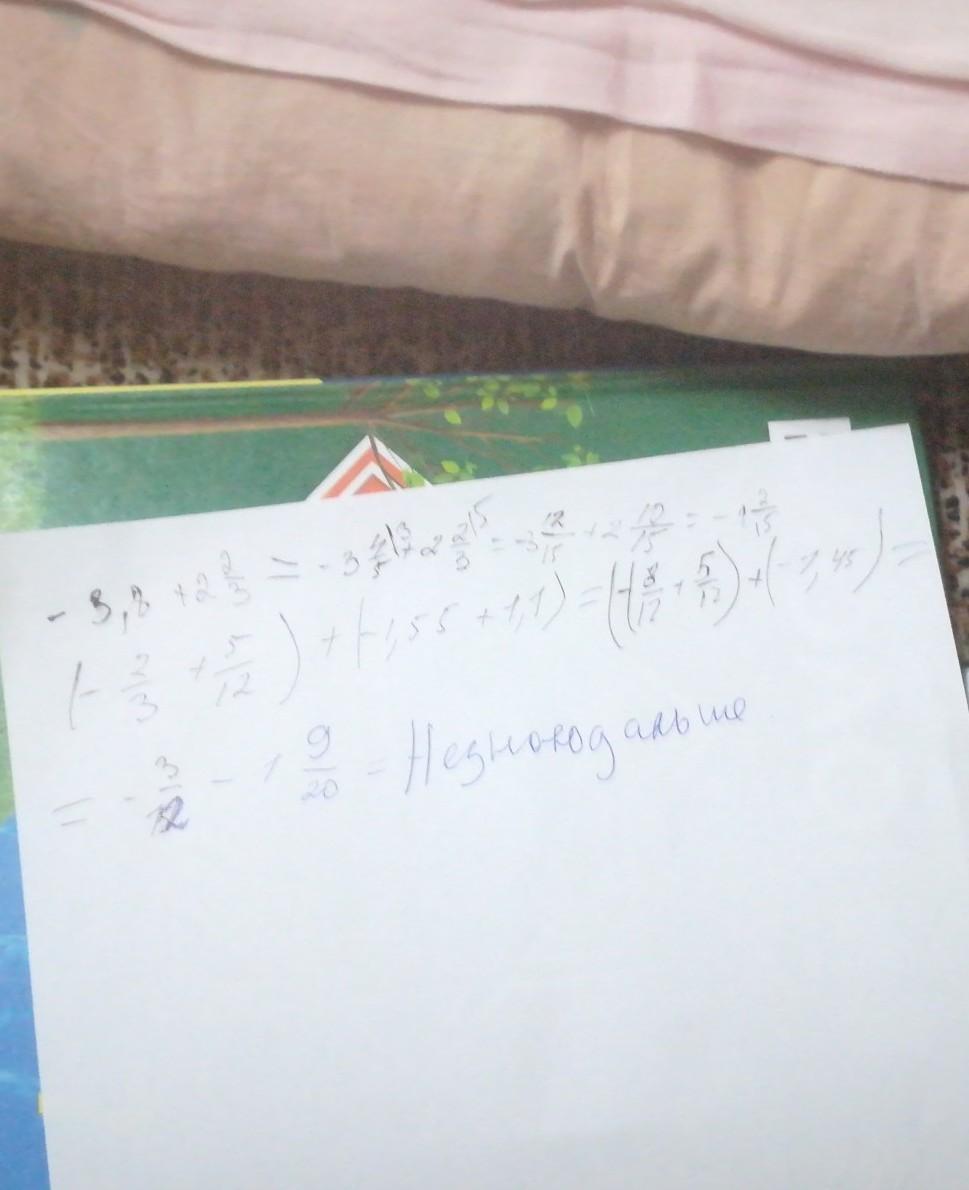 - 3,8 + 2 2/3 = - 3 4/5 |3 + 2 2/3 |5 = -3 12/15 + 2 10/15 = - 1 2/15
(- 2/3 + 5/12) + (-1,55 + 1,1) = (- 8/12 + 5/12) + (-1,45) =
= - 3/12 - 1 9/20 = Незнаюдальше